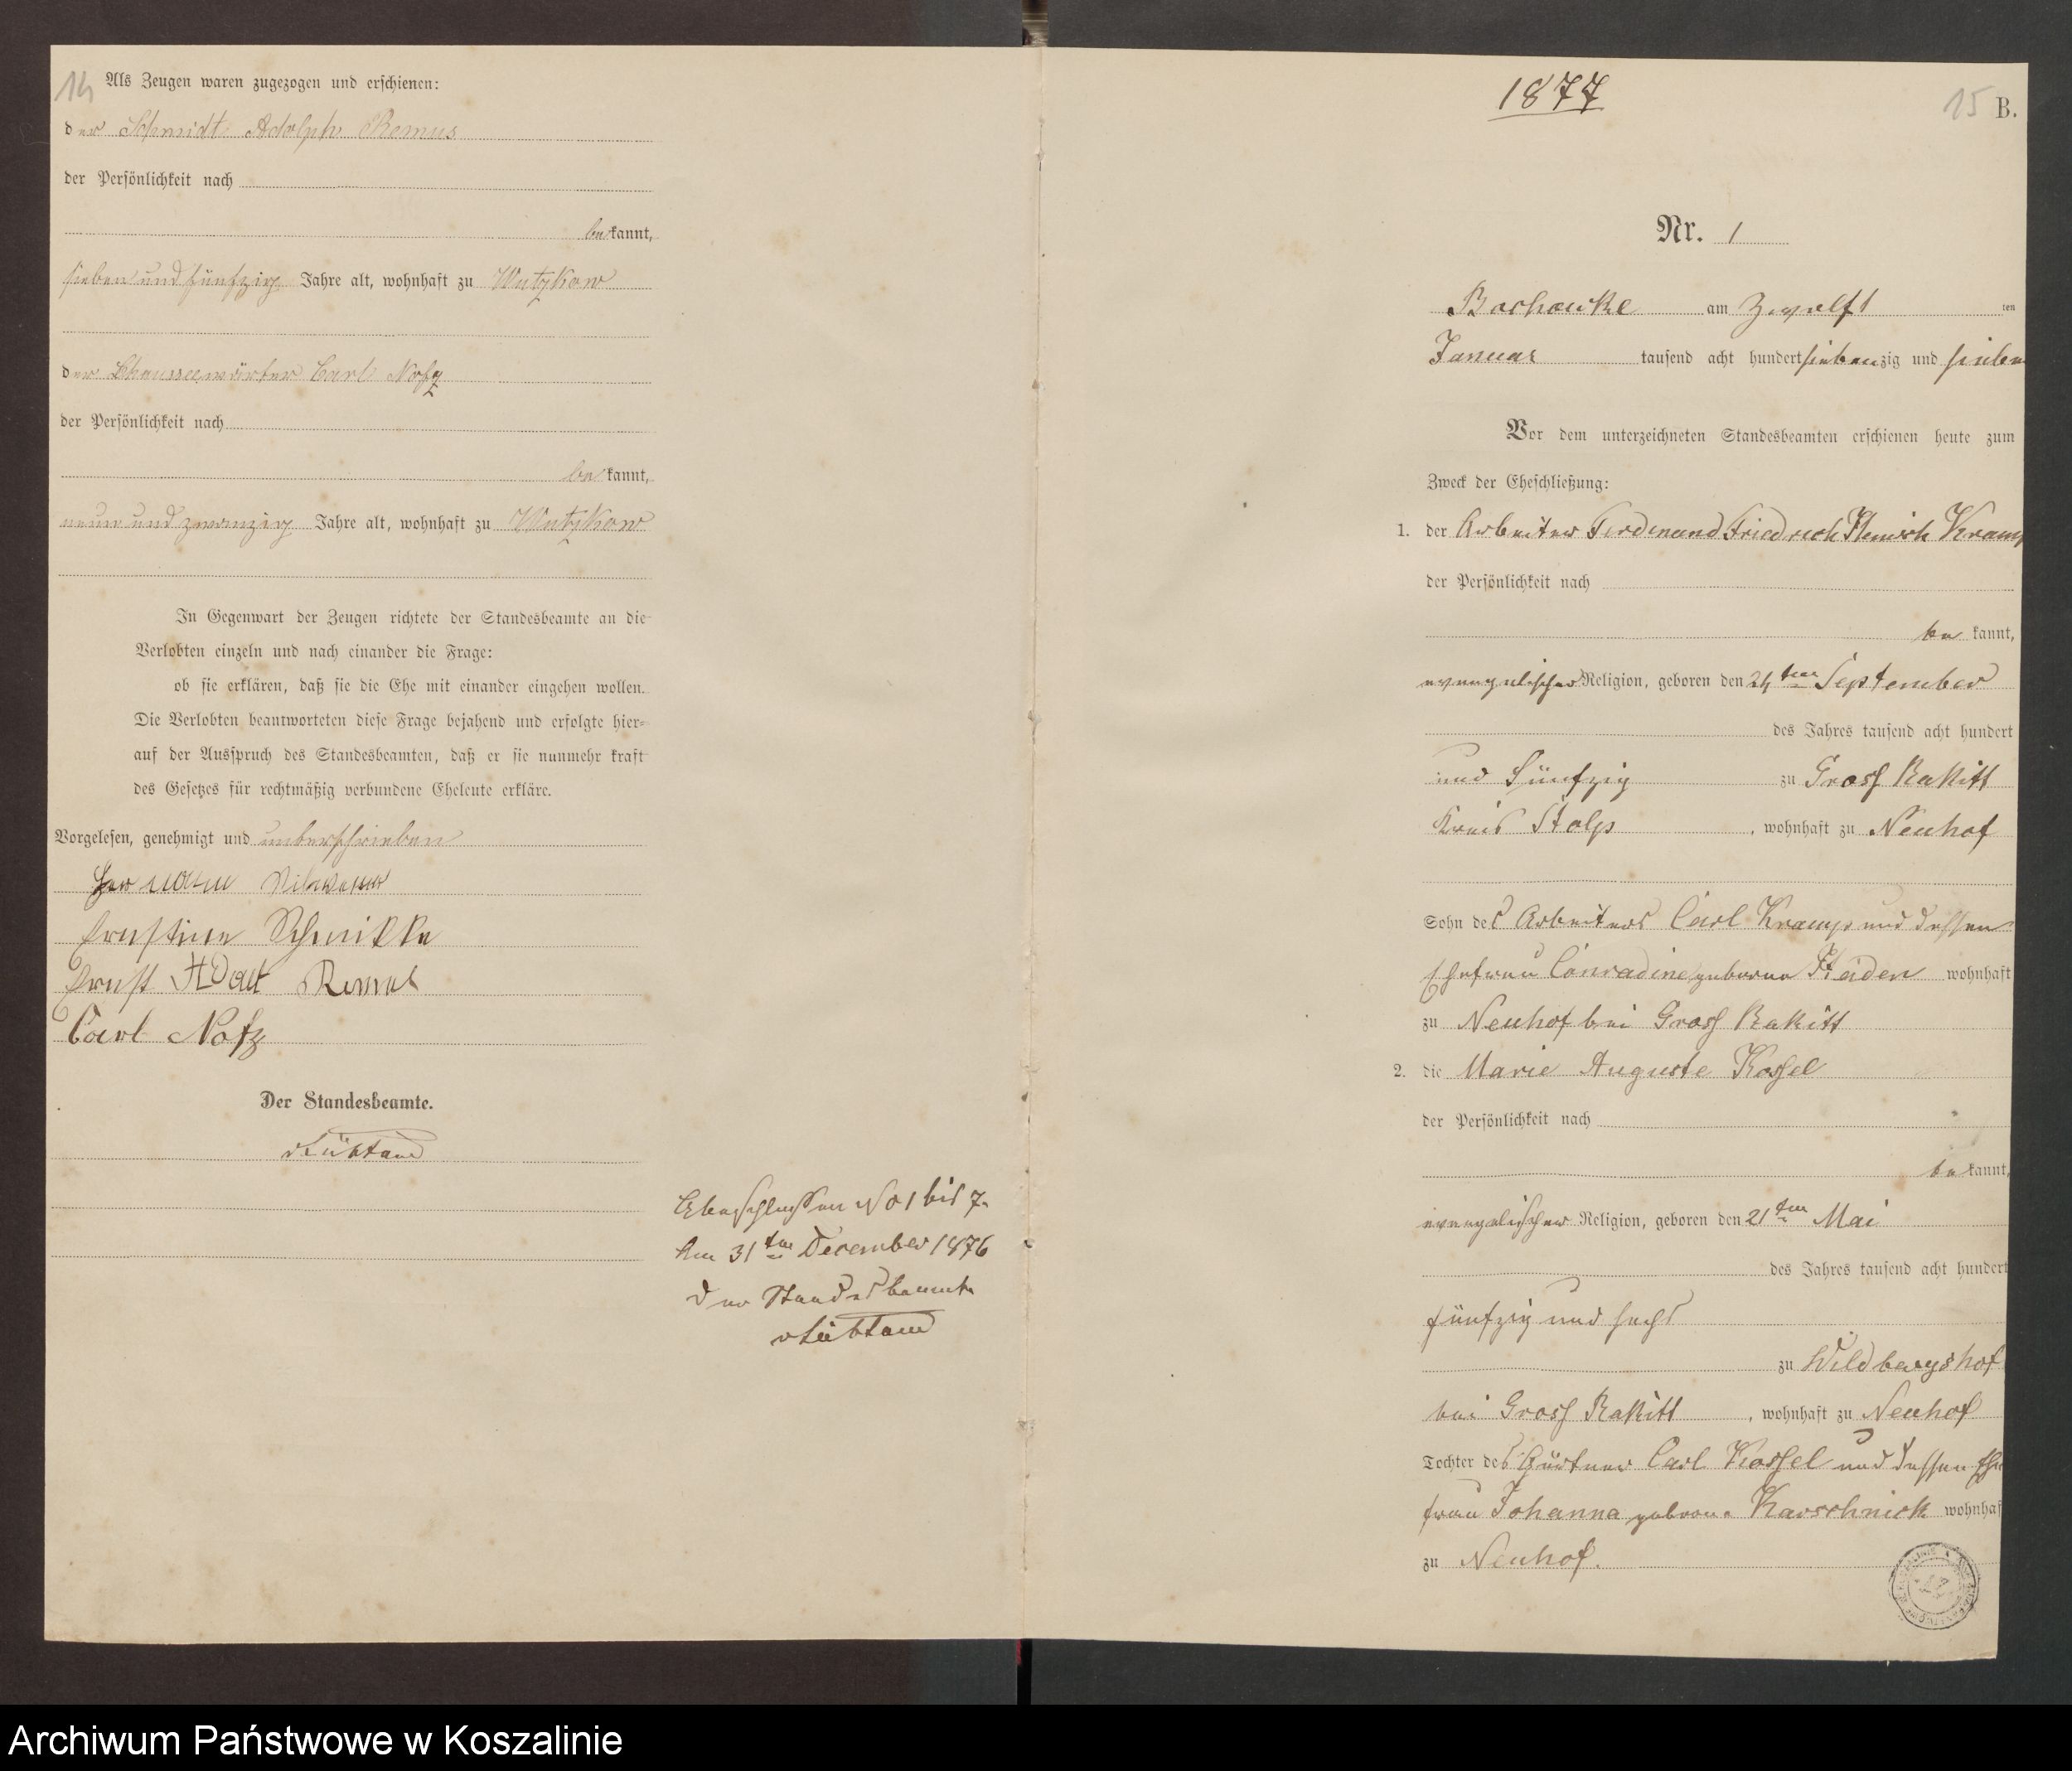 14
Als Zeugen waren zugezogen und erschienen:
der Schmidt Adolph Remus
der Persönlichkeit nach
bekannt,
sieben und fünfzig Jahre alt, wohnhaft zu Wutzkow
der Chausseewärter Carl Notz
der Persönlichkeit nach
bekannt,
neun und zwanzig Jahre alt, wohnhaft zu Wutzkow
In Gegenwart der Zeugen richtete der Standesbeamte an die
Verlobten einzeln und nach einander die Frage:
ob sie erklären, daß sie die Ehe mit einander eingehen wollen.
Die Verlobten beantworteten diese Frage bejahend und erfolgte hier=
auf der Ausspruch des Standesbeamten, daß er sie nunmehr kraft
des Gesetzes für rechtmäßig verbundene Eheleute erkläre.
Vorgelesen, genehmigt und unterschrieben
Hermann
Ernstine
Ernst Remus
Carl Notz
Der Standesbeamte.
No 1 bis 7.
Am 31ten December 1876
Der Standesbeamte
1877
15 B.
Nr. 1
am Zwölften
Januar tausend acht hundert siebenzig und sieben
Vor dem unterzeichneten Standesbeamten erschienen heute zum
Zweck der Eheschließung:
1. der Arbeiter Ferdinand Friedrich Heinrich Kramp
der Persönlichkeit nach
bekannt,
evangelischer Religion, geboren den 24ten September
des Jahres tausend acht hundert
und Fünfzig zu Gross Rakitt
Kreis Stolp, wohnhaft zu Neuhof
Sohn des Arbeiters Carl Kramp und dessen
Ehefrau Conradine geborne Heiden wohnhaft
zu Neuhof bei Gross Rakitt
2. die Marie Auguste Kossel
der Persönlichkeit nach
bekannt,
evangelischer Religion, geboren den 21ten Mai
des Jahres tausend acht hundert
fünfzig und sechs
zu Wildbergshof
bei Gross Rakitt, wohnhaft zu Neuhof
Tochter des Gärtner Carl Kossel und dessen Ehe
frau Johanna geborne Karschnick wohnhaf
zu Neuhof.
Archiwum Państwowe w Koszalinie